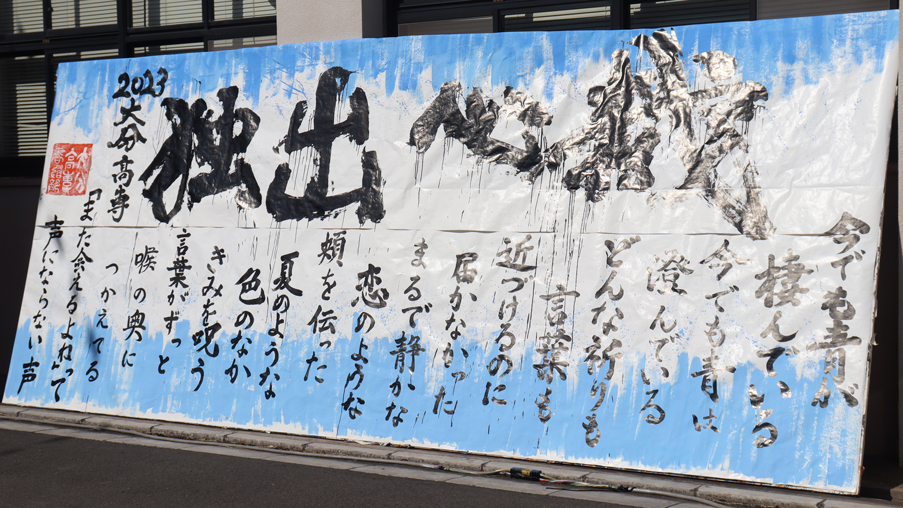 独出心裁
今でも青が
棲んでいる
今でも青は
澄んでいる
どんな祈りも
言葉も
近づけるのに
届かなかった
まるで静かな
恋のような
頬を伝った
夏のような
色のなか
きみを呪う
言葉がずっと
喉の奥に
つかえてる
「また会えるよねって
声にならない声
2023
大分高専